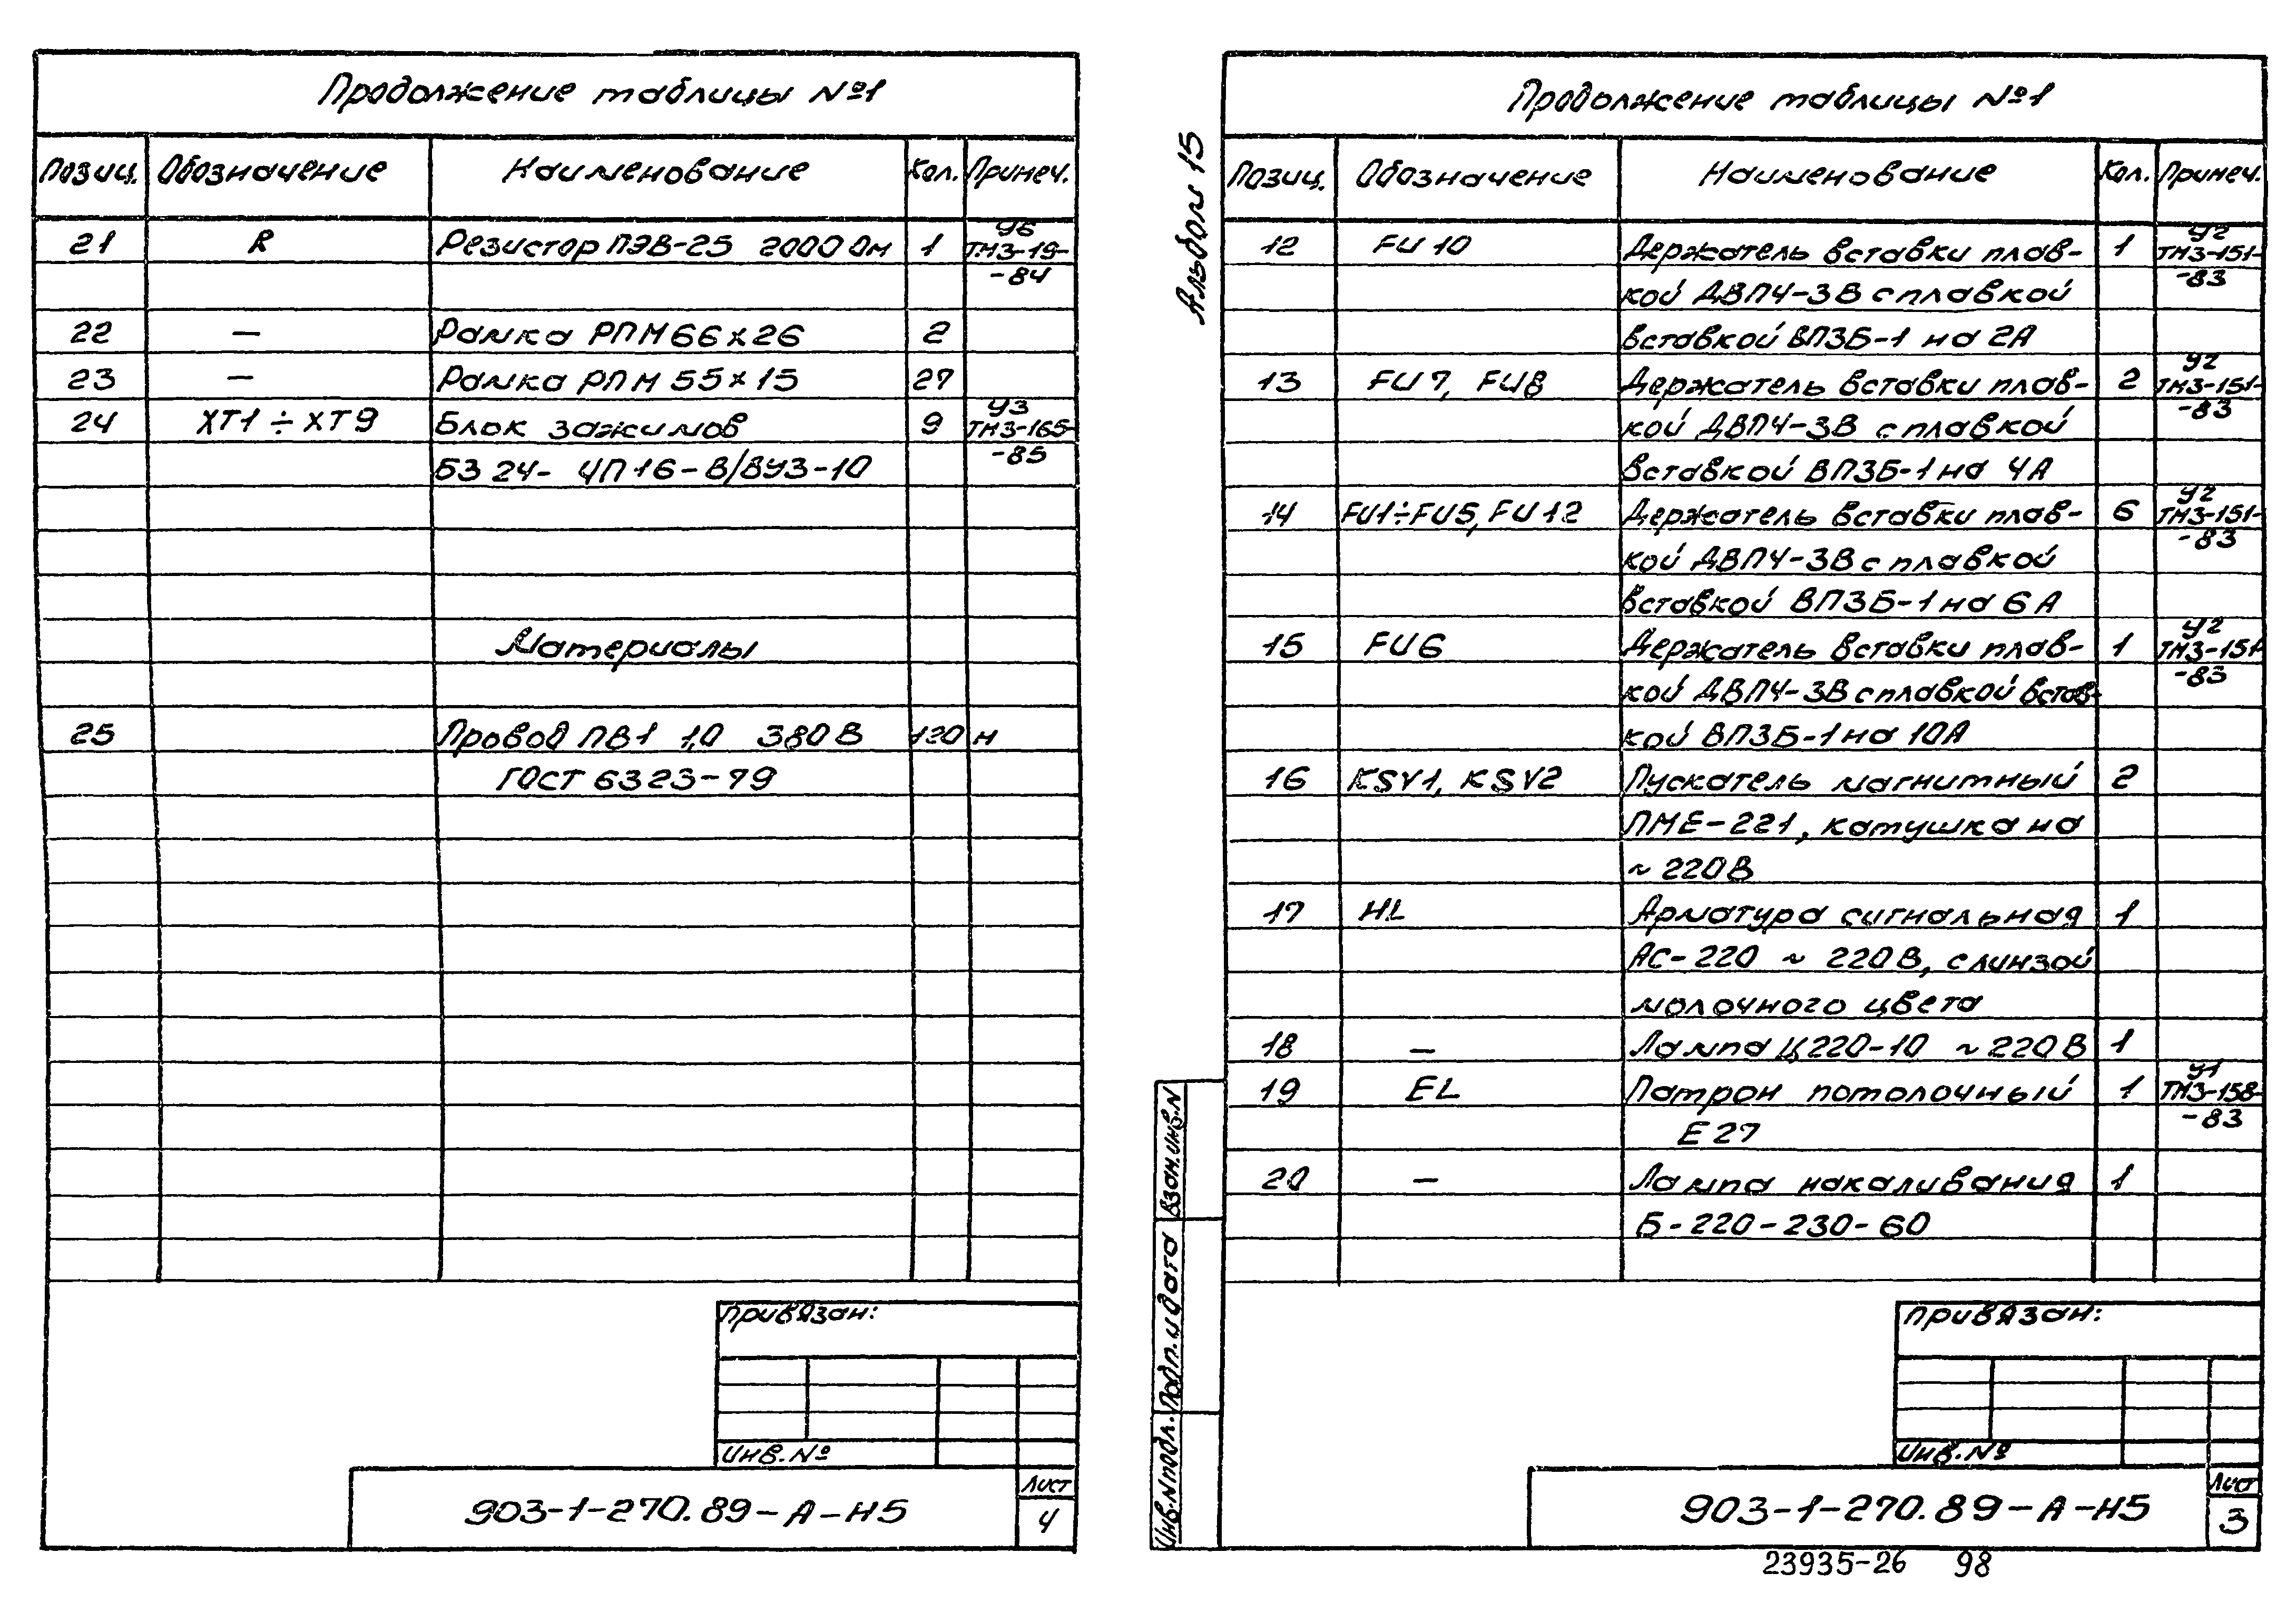 Продолжение таблицы №1
Позиц. Обозначение Наименование Кол. Примеч.
21 R Резистор ПЭВ-25 2000 Ом 1 У6
ТМ3-19-
-84
22 — Рамка РПМ 66х26 2
23 — Рамка РПМ 55х15 27
24 ХТ1÷ХТ9 Блок зажимов 9 У3
ТМ3-165-
БЗ 24- 4П16-В/ВУ3-10 -85
Материалы
25 Провод ПВ1 1,0 380 В 120 м
ГОСТ 6323-79
Привязан:
Инв.№
903-1-270.89-А-Н5
Лист
4
Альбом 15
Продолжение таблицы №1
Позиц. Обозначение Наименование Кол. Примеч.
12 FU10 Держатель вставки плав- 1 У2
ТМ3-151-
кой ДВП4-3В с плавкой -83
вставкой ВП3Б-1 на 2А
13 FU7, FU8 Держатель вставки плав- 2 У2
ТМ3-151-
кой ДВП4-3В с плавкой -83
вставкой ВП3Б-1 на 4А
14 FU1÷FU5, FU12 Держатель вставки плав- 6 У2
ТМ3-151-
кой ДВП4-3В с плавкой -83
вставкой ВП3Б-1 на 6А
15 FU6 Держатель вставки плав- 1 У2
ТМ3-151-
кой ДВП4-3В с плавкой встав- -83
кой ВП3Б-1 на 10А
16 KSV1, KSV2 Пускатель магнитный 2
ПМЕ-221, катушка на
~ 220В
17 HL Арматура сигнальная 1
АС-220 ~ 220В, с линзой
молочного цвета
18 — Лампа Ц220-10 ~220В 1
19 EL Патрон потолочный 1 У1
ТМ3-158-
Е27 -83
20 — Лампа накаливания 1
Б-220-230-60
Взам.инв.N
Подп. и дата
Инв.N подл.
Привязан:
Инв.№
903-1-270.89-А-Н5
Лист
3
23935-26 98